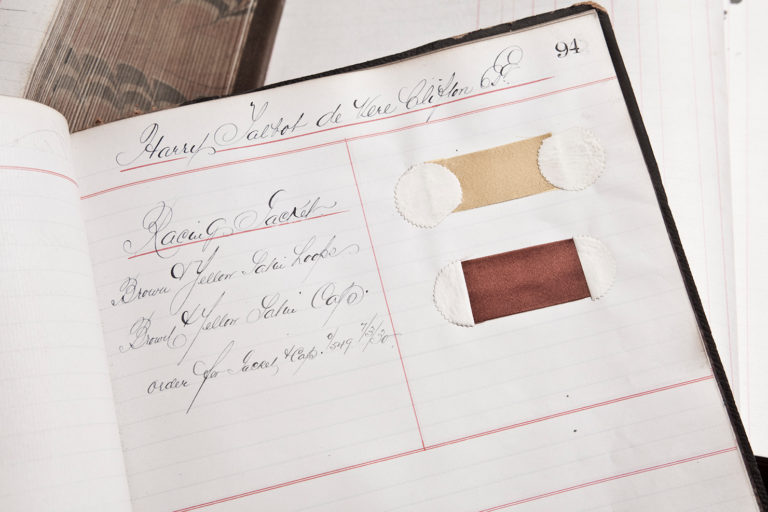 94
Harry Talbot de Vere Clifton Esq
Racing Jacket
Brown & Yellow Satin hoops
Brown & Yellow Satin Cap.
order for Jacket & Cap. 7/3/30.